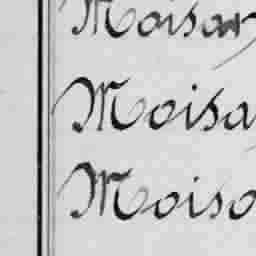 Moisan
Moisa
Moiso